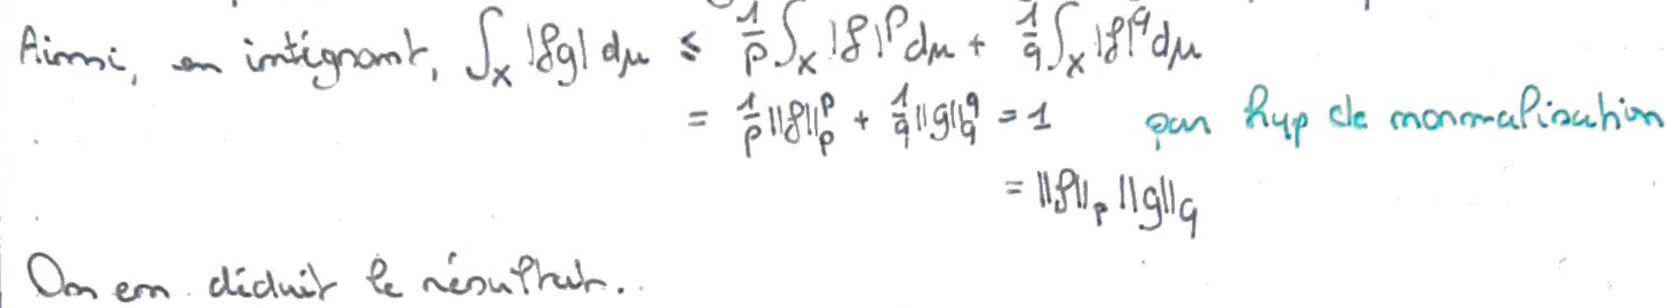 Ainsi, en intégrant, ∫_X |fg| dμ ≤ 1/p ∫_X |f|^p dμ + 1/q ∫_X |f|^q dμ
= 1/p ||f||_p^p + 1/q ||g||_q^q = 1 par hyp de normalisation
= ||f||_p ||g||_q
On en déduit le résultat..